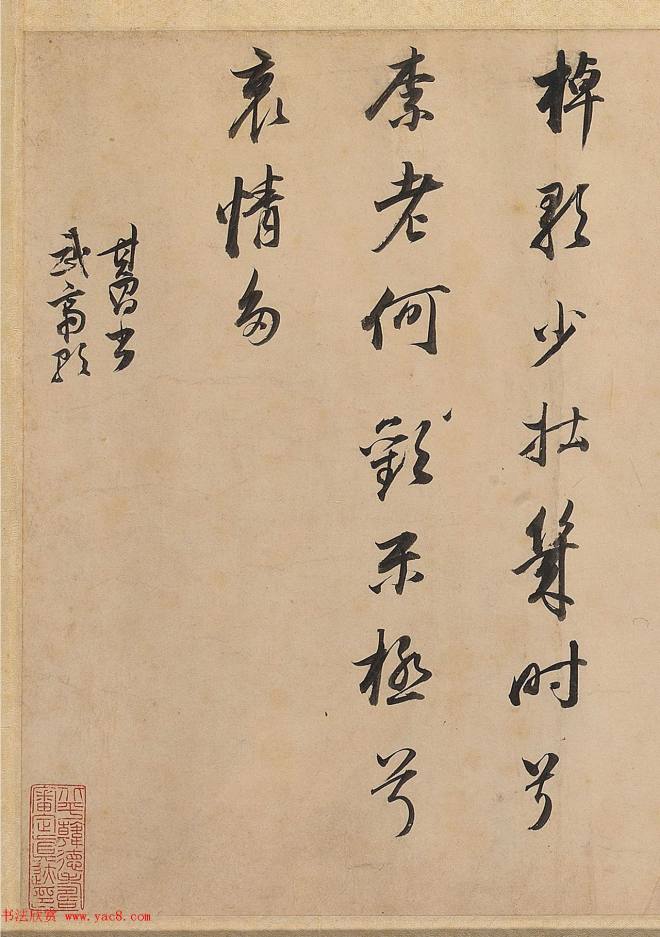 棹歌少壮幾时兮
柰老何歡樂極兮
哀情多
其昌書
武帝歌
书法欣赏 www.yac8.com